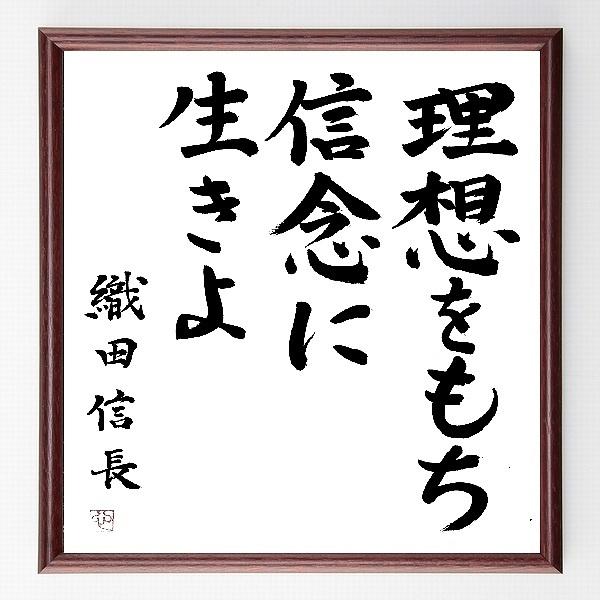 理想をもち
信念に
生きよ
織田信長